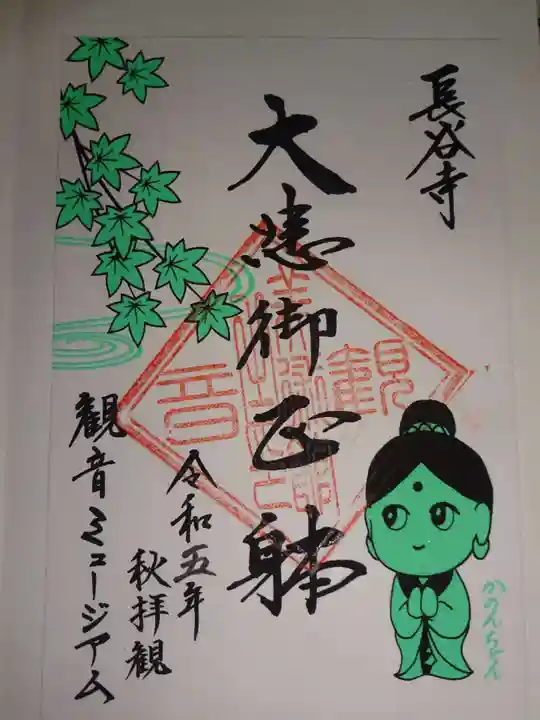 長谷寺
大悲御正躰
令和五年
秋拝観
観音ミュージアム
観
音
かのんちゃん